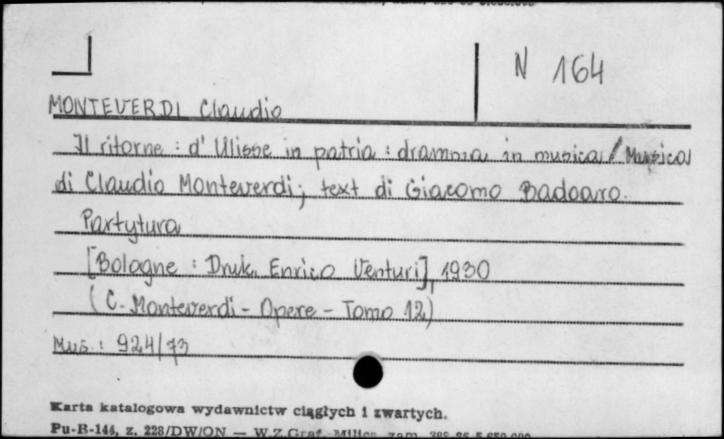 N 164
MONTEVERDI Claudio
Il ritorne : d' Ulisse in patria : dramma in musica / Musica
di Claudio Monteverdi; text di Giacomo Badoaro.
Partytura
[Bologne : Druk. Enrico Venturi], 1930
(C. Monteverdi - Opere - Tomo 12)
Mus.: 924/73
Karta katalogowa wydawnictw ciągłych i zwartych.
Pu-B-146, z. 228/DW/ON — W.Z.Graf. zam.